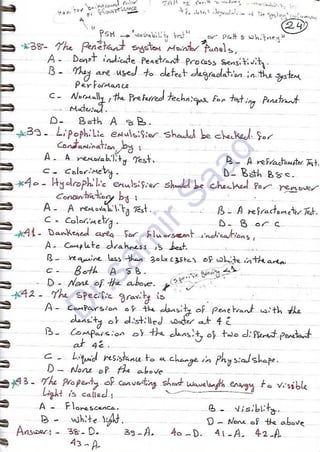 24
PSM → "washability test" or Pratt & Whitney"
*38- The Penetrant System Monitor Panels,
A - Don't indicate Penetrant Process Sensitivity.
B - They are used to detect degradation in the system
Performance
C - Normally, the Preferred technique for testing Penetrant
Material.
D- Both A & B.
*39- Lipophilic emulsifier should be checked for
Contamination by:
A - A removability Test. B - A refractometer Test.
C - Colorimetry. D - Both B & C.
*40- Hydrophilic emulsifier should be checked for remover
Concentration by:
A - A removability Test. B - A refractometer Test.
C - Colorimetry. D - B or C
*41- Darkened area for fluorescent indications,
A - Complete drakness is best.
B - require less than 20 lux (2 ftc) of white in the area
C - Both A & B.
D - None of the above.
*42- The Specific gravity is
A - Comparsion of the density of penetrant with the
density of distilled water at 4 c̊
B - Comparsion of the density of two different penetrant
at 4c̊.
C - Liquid resistance to a change in Physical shape.
D - None of the above
*43- The Property of Converting Short wavelength energy to visible
Light is called:
A - Florescence. B - Visiblity.
B - white light. D - None of the above
Answers: - 38- D. 39- A. 40- D. 41- A. 42- A
43- A